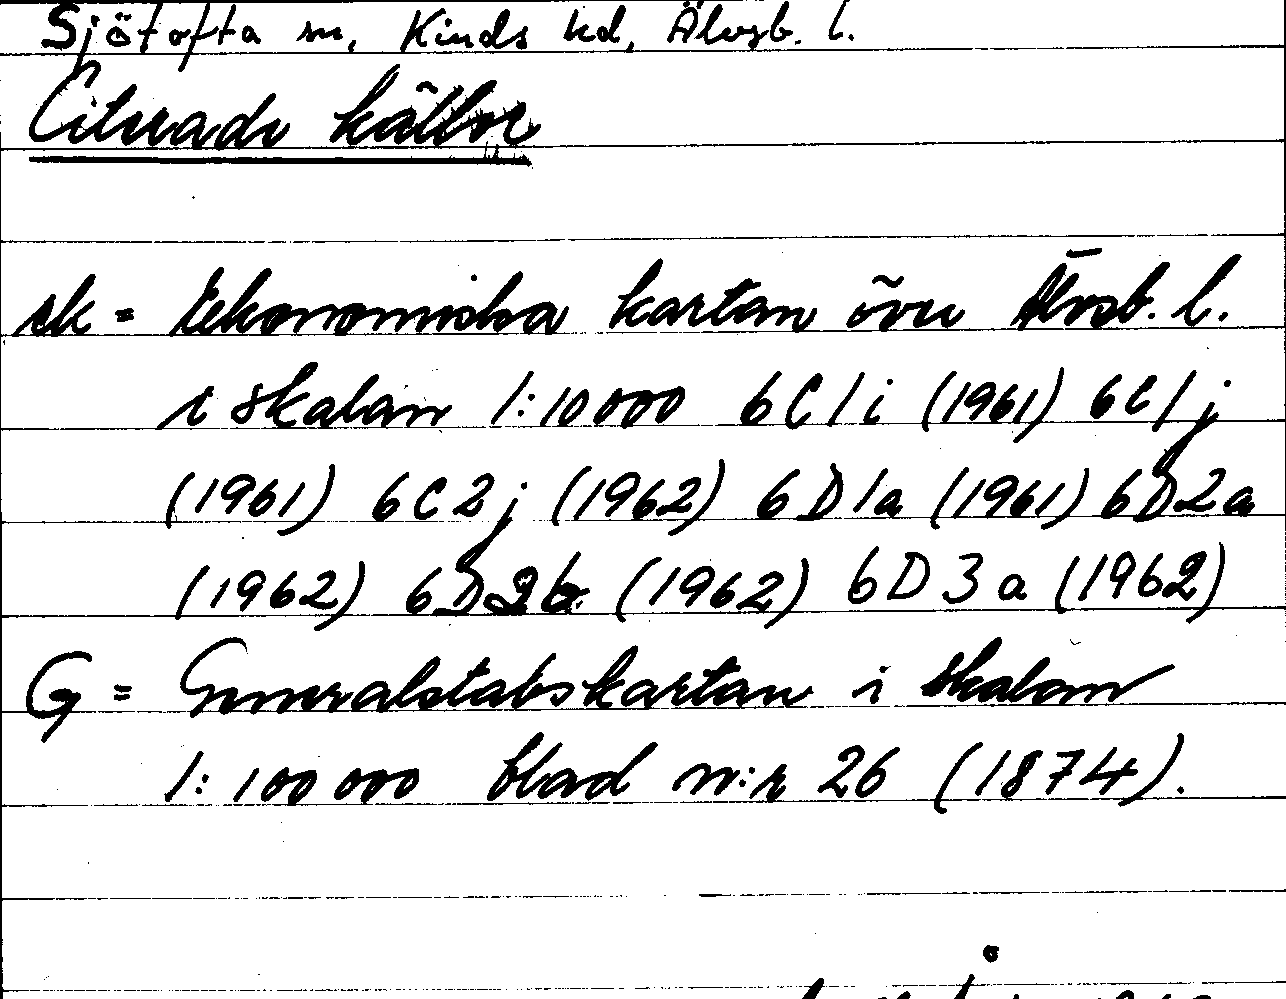 Sjötofta sn, Kinds hd, Älvsb. l.
Citerade källor
ek = Ekonomiska kartan över Älvsb. l.
i skalan 1:10000 6C1i (1961) 6C1j
(1961) 6C2j (1962) 6D1a (1961) 6D2a
(1962) 6D2b (1962) 6D3a (1962)
G = Generalstabskartan i skalan
1:100 000 blad n:r 26 (1874).